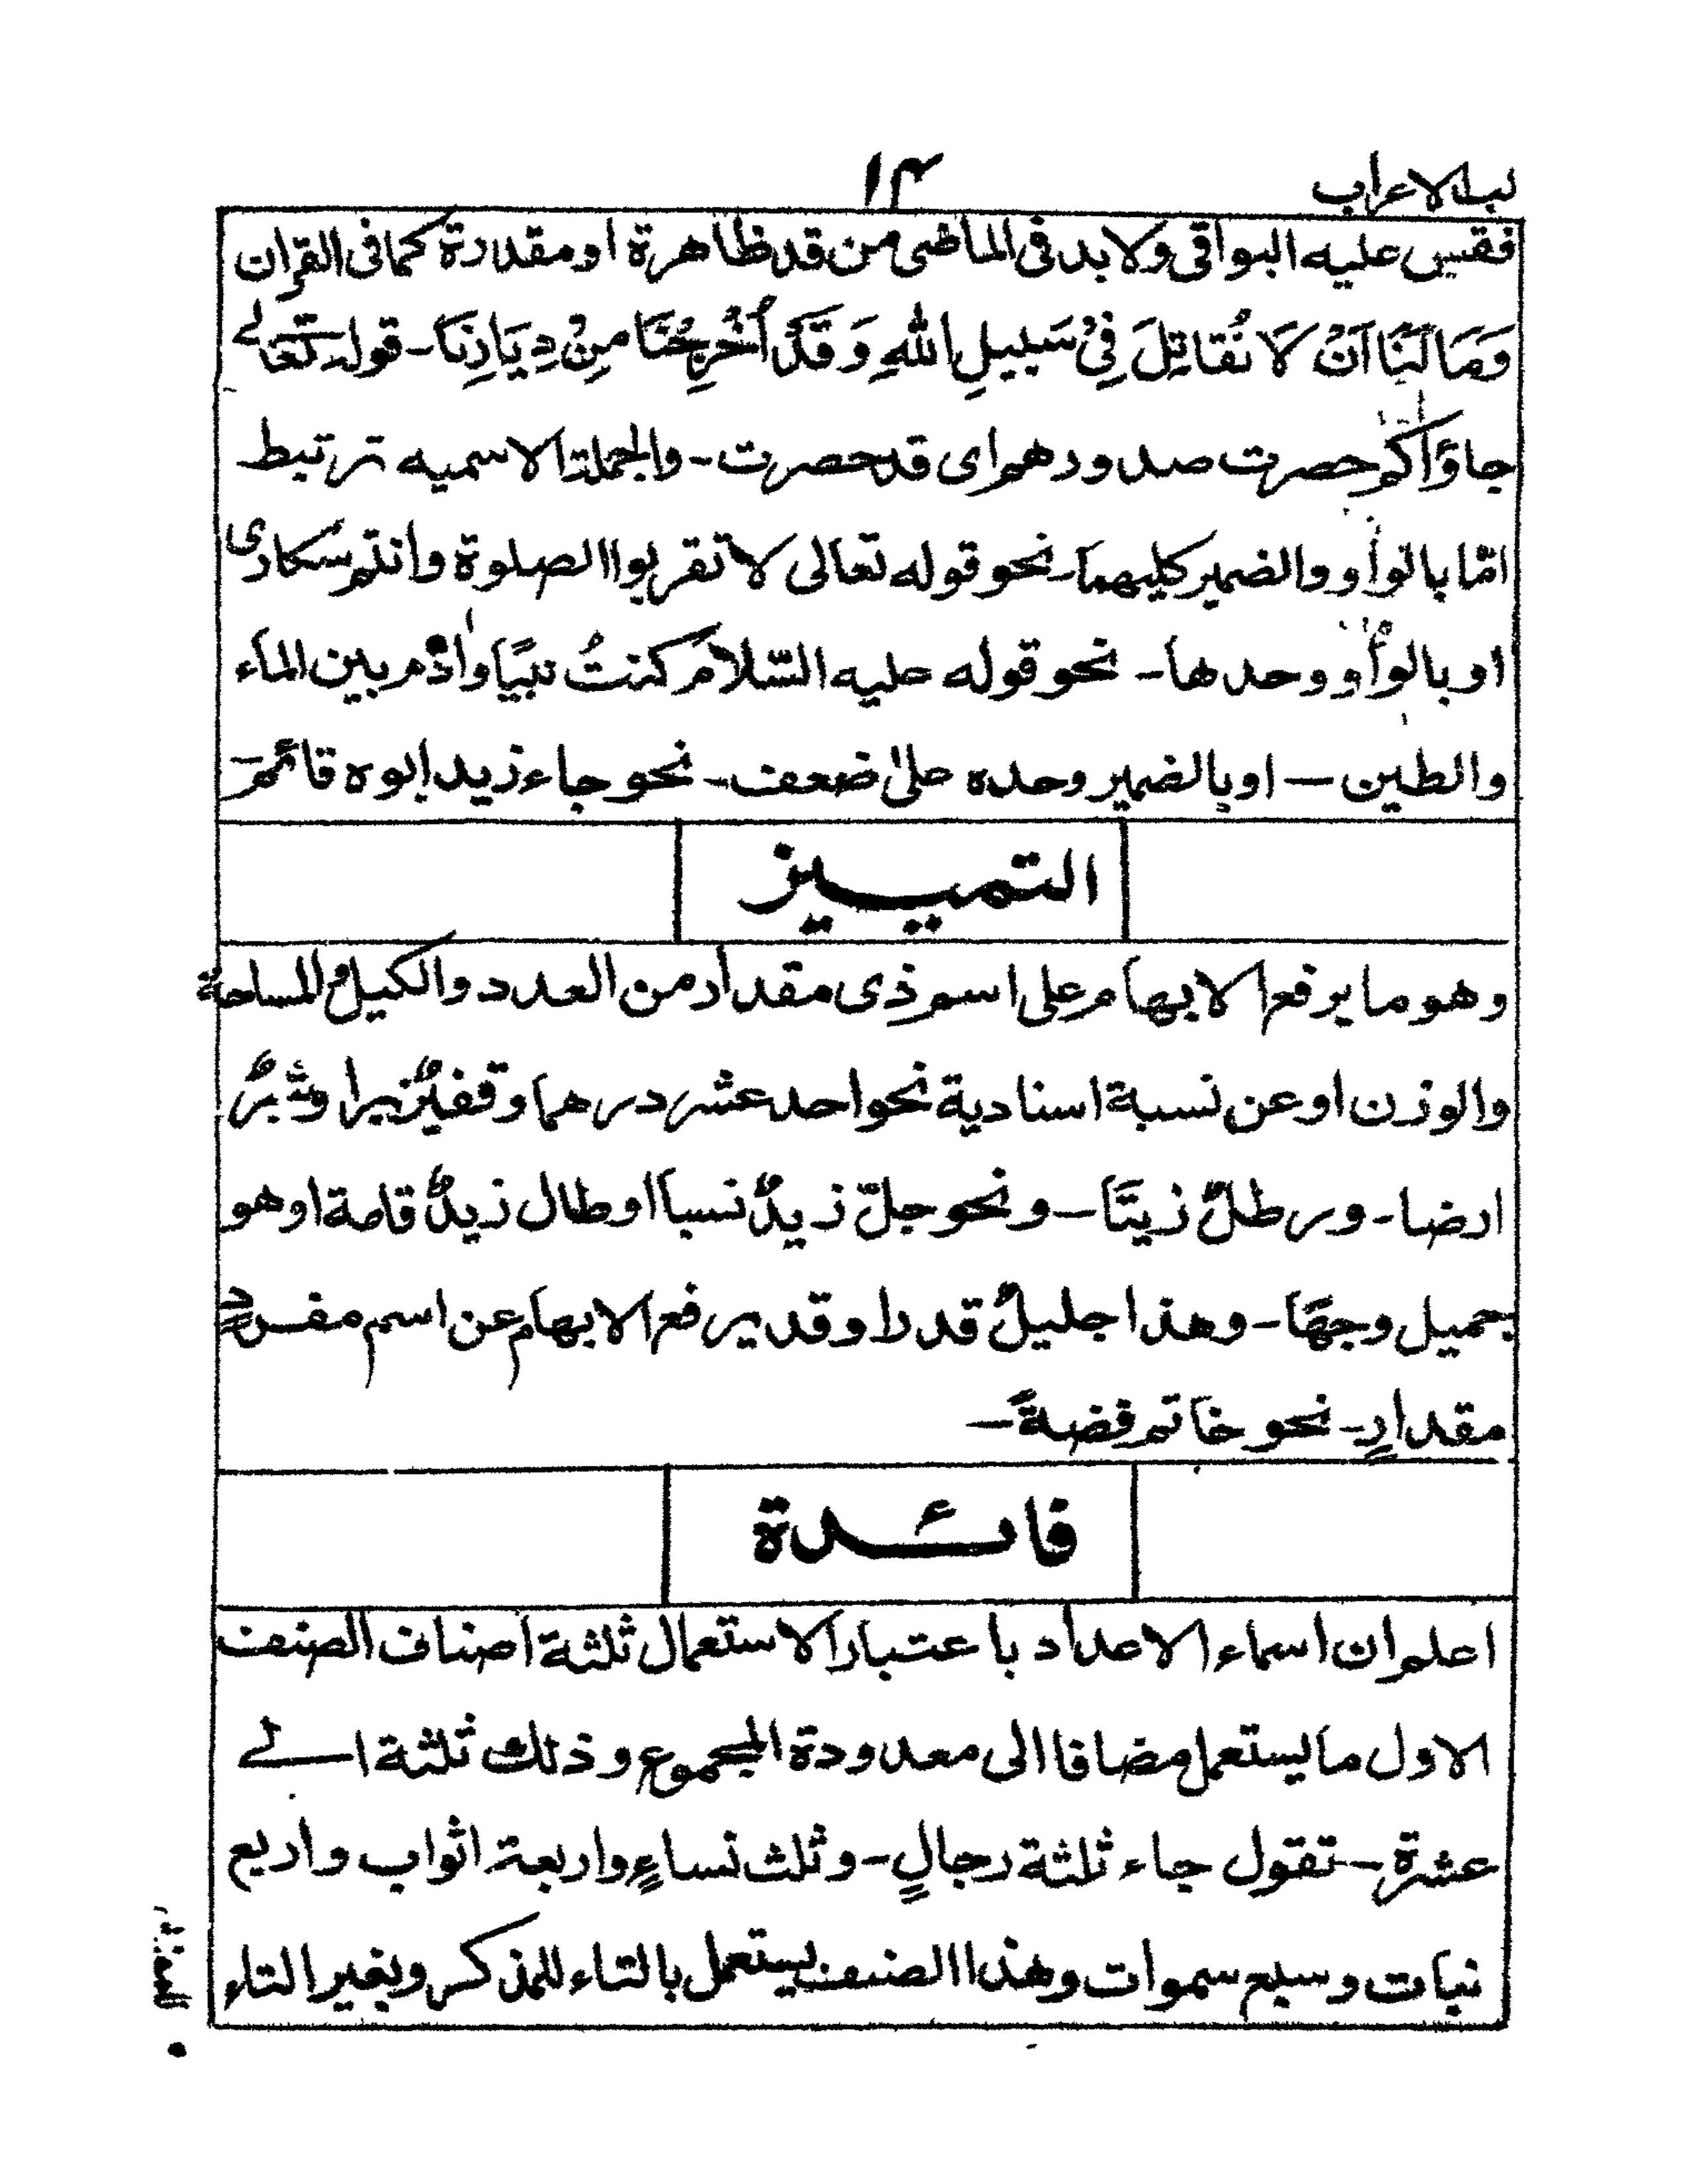 لب الاعراب
۱۴
فقس عليه البواقى ولا بد فى الماضى من قد ظاهرة او مقدرة كما فى القران
وَمَا لَنَا اَنْ لَا نُقَاتِلَ فِىْ سَبِيلِ اللهِ وَقَدْ اُخْرِجْنَا مِنْ دِيَارِنَا - قوله تعالے
جاؤاكم حصرت صدورهم اى قد حصرت - والجملة الاسميه ترتبط
امّا بالواو والضمير كليهما - نحو قوله تعالى لا تقربوا الصلوة وانتم سكارى
او بالواو وحدها - نحو قوله عليه السّلام كنتُ نبيًا واٰدم بين الماء
والطين — او بالضمير وحده علىٰ ضعف - نحو جاء زيد ابوه قائم -
التمييز
وهو ما يرفع الابهام على اسم ذى مقدار من العدد والكيل والمساحة
والوزن او عن نسبة اسنادية نحو احد عشر درهما وقفيزٌ برا وشبرٌ
ارضا - ورطلٌ زيتًا — ونحو جلّ زيدٌ نسبا او طال زيدٌ قامة او هو
جميل وجهًا - وهذا جليلٌ قدرا وقد يرفع الابهام عن اسم مفردٍ
مقدارٍ - نحو خاتم فضةً —
فائدة
اعلم ان اسماء الاعداد باعتبار الاستعمال ثلثة اصناف الصنف
الاول ما يستعمل مضافا الى معدودة المجموع وذلك ثلثة الے
عشرة - تقول جاء ثلثة رجالٍ - وثلث نساءٍ واربعة اثواب واربع
نبات وسبع سموات وهذا الصنف يستعمل بالتاء للمذكر وبغير التاء